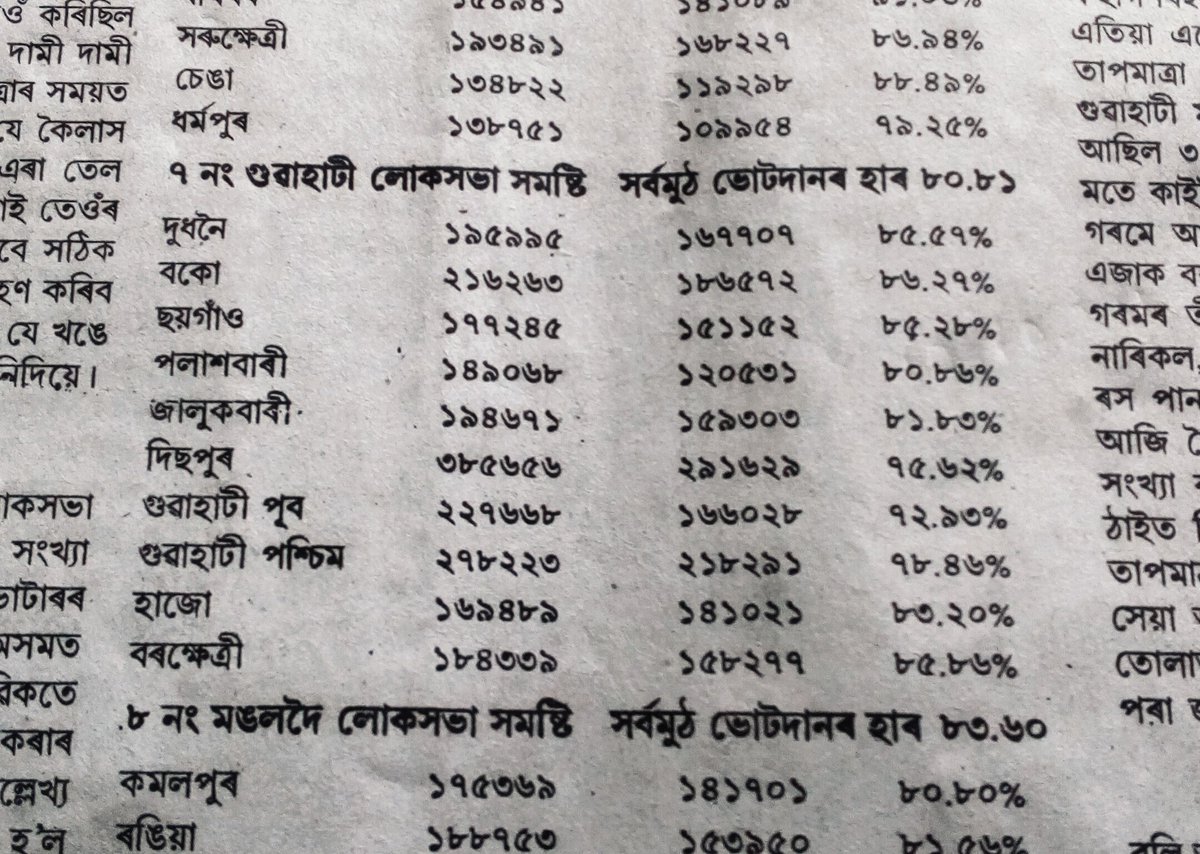 ওঁ কৰিছিল
দামী দামী
সময়ত
যে কৈলাস
এৰা তেল
তেওঁৰ
সঠিক
কৰিব
যে খঙে
নিদিয়ে।
সংখ্যা
কৰাৰ
হ'ল
সৰুক্ষেত্ৰী ১৯৩৪৯১ ১৬৮২২৭ ৮৬.৯৪%
চেঙা ১৩৪৮২২ ১১৯২৯৮ ৮৮.৪৯%
ধৰ্মপুৰ ১৩৮৭৫১ ১০৯৯৫৪ ৭৯.২৫%
৭ নং গুৱাহাটী লোকসভা সমষ্টি সৰ্বমুঠ ভোটদানৰ হাৰ ৮০.৮১
দুধনৈ ১৯৫৯৯৫ ১৬৭৭০৭ ৮৫.৫৭%
বকো ২১৬২৬৩ ১৮৬৫৭২ ৮৬.২৭%
ছয়গাঁও ১৭৭২৪৫ ১৫১১৫২ ৮৫.২৮%
পলাশবাৰী ১৪৯০৬৮ ১২০৫৩১ ৮০.৮৬%
জালুকবাৰী ১৯৪৬৭১ ১৫৯৩০৩ ৮১.৮৩%
দিছপুৰ ৩৮৫৬৫৬ ২৯১৬২৯ ৭৫.৬২%
গুৱাহাটী পূব ২২৭৬৬৮ ১৬৬০২৮ ৭২.৯৩%
গুৱাহাটী পশ্চিম ২৭৮২২৩ ২১৮২৯১ ৭৮.৪৬%
হাজো ১৬৯৪৮৯ ১৪১০২১ ৮৩.২০%
বৰক্ষেত্ৰী ১৮৪৩৩৯ ১৫৮২৭৭ ৮৫.৮৬%
৮ নং মঙলদৈ লোকসভা সমষ্টি সৰ্বমুঠ ভোটদানৰ হাৰ ৮৩.৬০
কমলপুৰ ১৭৫৩৬৯ ১৪১৭০১ ৮০.৮০%
ৰঙিয়া ১৮৮৭৫৩ ১৫৩৯৫০ ৮১.৫৬%
এতিয়া
তাপমাত্ৰা
গুৱাহাটী
আছিল
মতে
গৰমে
এজাক
গৰমৰ
নাৰিকল,
ৰস
আজি
সংখ্যা
ঠাইত
সেয়া
পৰা